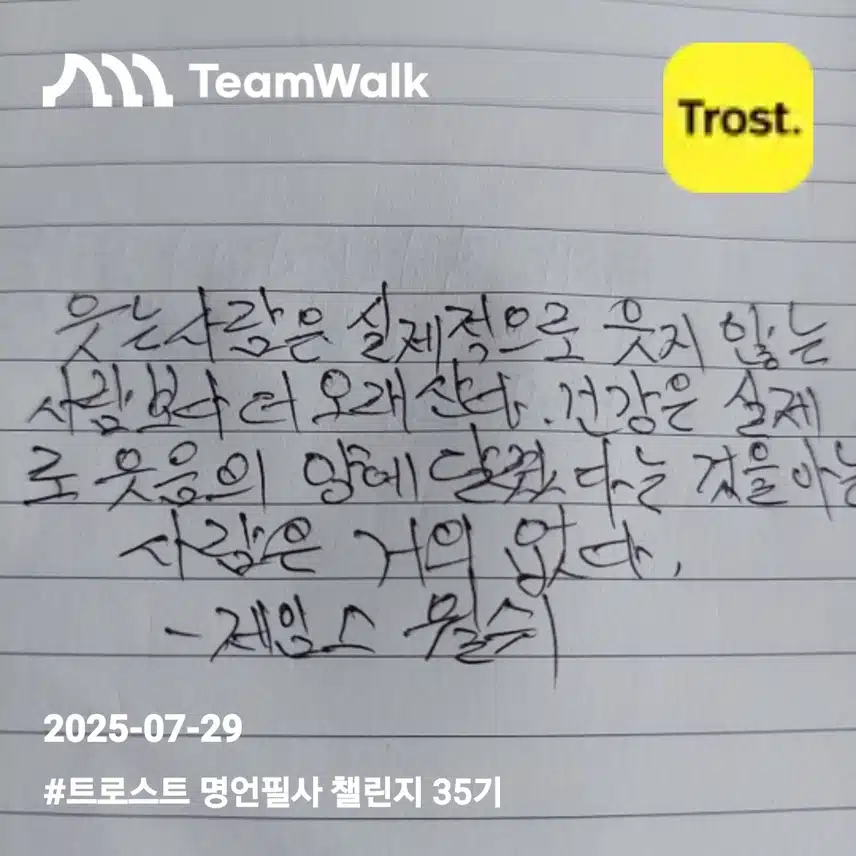 TeamWalk
Trost.
웃는 사람은 실제적으로 웃지 않는
사람보다 더 오래 산다. 건강은 실제
로 웃음의 양에 달렸다는 것을 아는
사람은 거의 없다.
- 제임스 월쉬
2025-07-29
#트로스트 명언필사 챌린지 35기